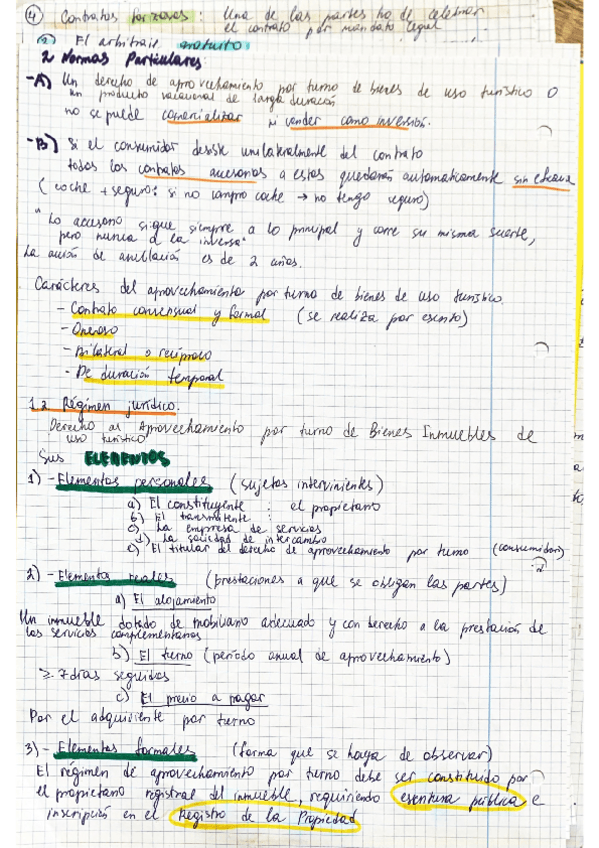 ④ Contratos forzosos : Una de las partes ha de celebrar
el contrato por mandato legal
(2) El arbitraje gratuito
2 Normas Particulares
-A) Un derecho de aprovechamiento por turno de bienes de uso turístico o
un producto vacacional de larga duración
no se puede comercializar ni vender como inversión.
-B) Si el consumidor desiste unilateralmente del contrato
todos los contratos accesorios a estos quedarán automaticamente sin eficacia
(coche + seguro: si no compro coche → no tengo seguro)
"Lo accesorio sigue siempre a lo principal y corre su misma suerte,
pero nunca a la inversa"
La acción de anulación es de 2 años.
Carácteres del aprovechamiento por turno de bienes de uso turístico.
- Contrato consensual y formal (se realiza por escrito)
- Oneroso
- Bilateral o recíproco
- De duración temporal
1.2 Régimen jurídico.
Derecho al Aprovechamiento por turno de Bienes Inmuebles de
uso turístico
Sus ELEMENTOS
1) - Elementos personales (sujetos intervinientes)
a) El constituyente : el propietario
b) El transmitente :
c) La empresa de servicios
d) La sociedad de intercambio
e) El titular del derecho de aprovechamiento por turno (consumidor)
2) - Elementos reales (prestaciones a que se obligan las partes)
a) El alojamiento
Un inmueble dotado de mobiliario adecuado y con derecho a la prestación de
los servicios complementarios
b) El turno (período anual de aprovechamiento)
≥ 7 días seguidos
c) El precio a pagar
Por el adquiriente por turno
3) - Elementos formales (forma que se haya de observar)
El régimen de aprovechamiento por turno debe ser constituido por
el propietario registral del inmueble, requiriendo escritura pública e
inscripción en el Registro de la Propiedad